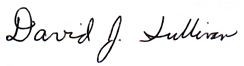 David J. Sullivan